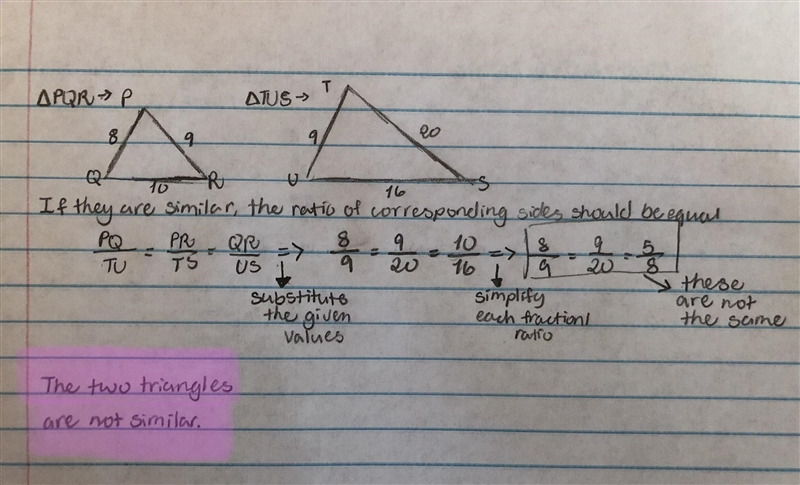 △PQR → P
△TUS → T
8 9
9 20
Q 10 R
U 16 S
If they are similar, the ratio of corresponding sides should be equal
PQ/TU = PR/TS = QR/US => 8/9 = 9/20 = 10/16 => 8/9 = 9/20 = 5/8
substitute
the given
values
simplify
each fraction/
ratio
these
are not
the same
The two triangles
are not similar.